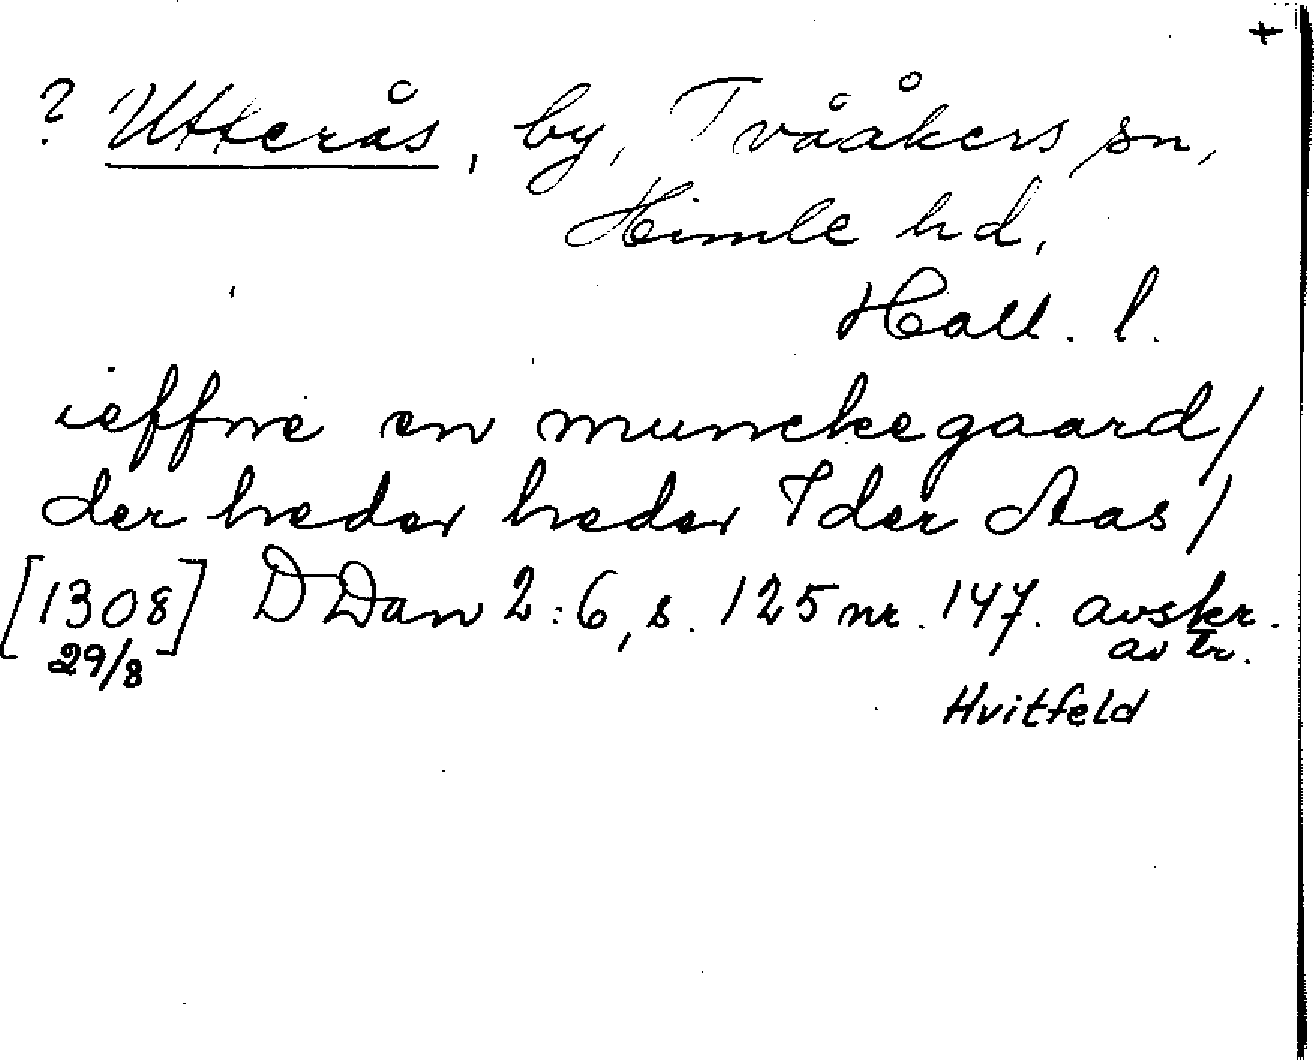 +
? Utterås, by, Tvååkers sn,
Himle hd,
Hall. l.
ieffne en munckegaard/
der heder heder Ider Aas/
[1308] DDan 2:6, s. 125 nr. 147. avskr.
29/8 av tr.
Hvitfeld